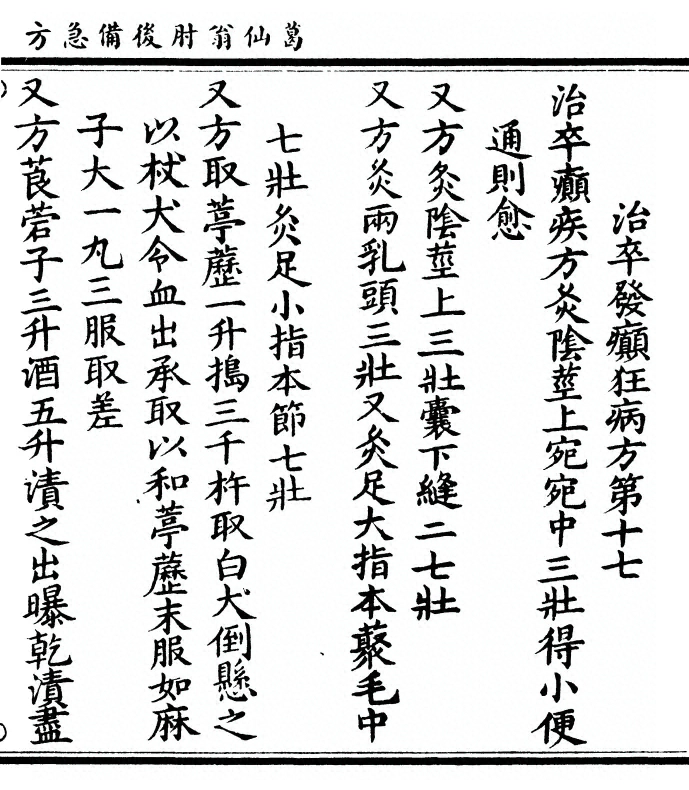 葛仙翁肘後備急方
治卒發癲狂病方第十七
治卒癲疾方灸陰莖上宛宛中三壯得小便
通則愈
又方灸陰莖上三壯囊下縫二七壯
又方灸兩乳頭三壯又灸足大指本藂毛中
七壯灸足小指本節七壯
又方取葶藶一升搗三千杵取白犬倒懸之
以杖犬令血出承取以和葶藶末服如麻
子大一丸三服取差
又方莨菪子三升酒五升漬之出曝乾漬盡